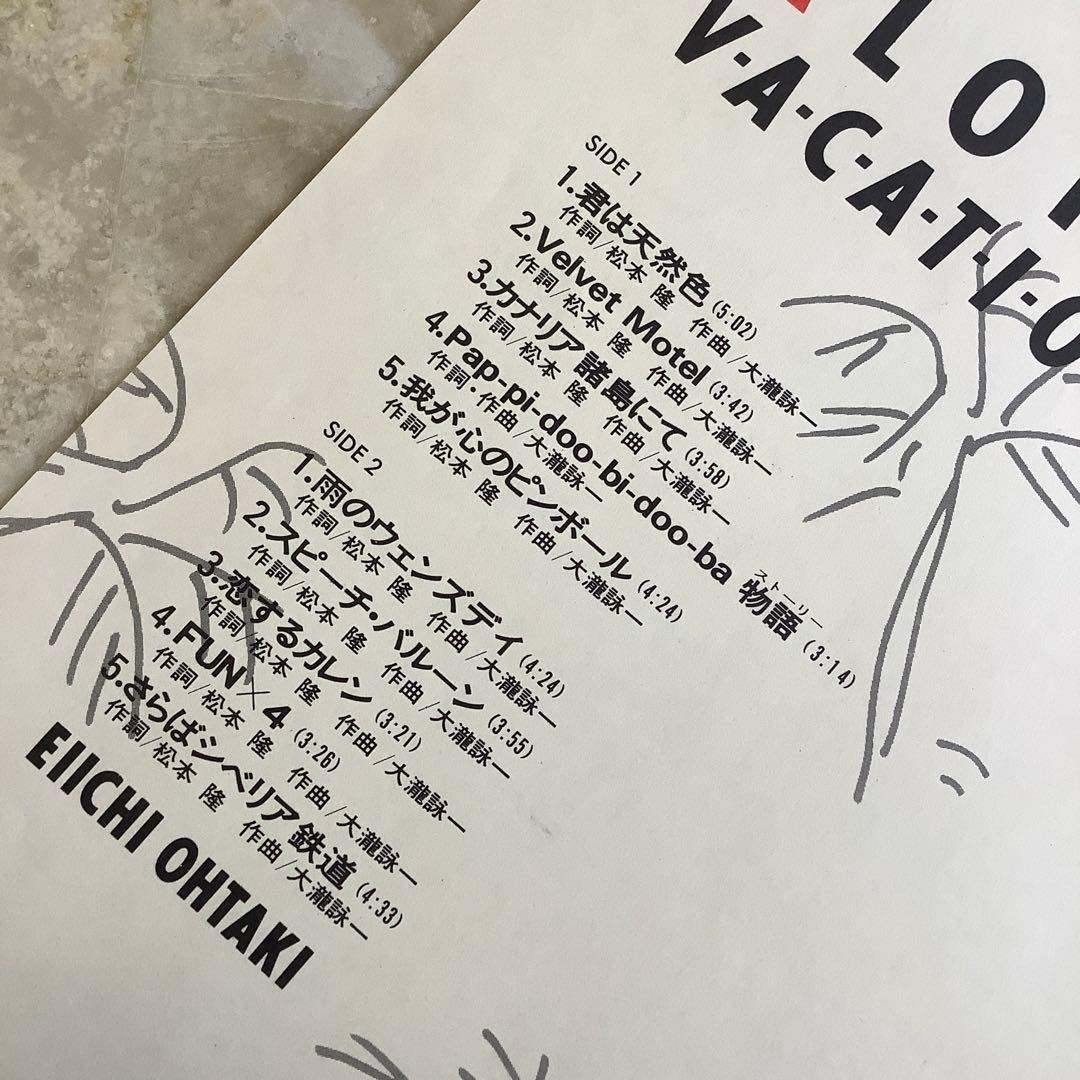 LO
V·A·C·A·T·I·O
SIDE 1
1.君は天然色(5:02)
作詞/松本 隆 作曲/大瀧詠一
2.Velvet Motel(3:42)
作詞/松本 隆 作曲/大瀧詠一
3.カナリア諸島にて(3:58)
作詞/松本 隆 作曲/大瀧詠一
4.Pap-pi-doo-bi-doo-ba 物語(3:14)
ストーリー
作詞・作曲/大瀧詠一
5.我が心のピンボール(4:24)
作詞/松本 隆 作曲/大瀧詠一
SIDE 2
1.雨のウェンズデイ(4:24)
作詞/松本 隆 作曲/大瀧詠一
2.スピーチ・バルーン(3:55)
作詞/松本 隆 作曲/大瀧詠一
3.恋するカレン(3:21)
作詞/松本 隆 作曲/大瀧詠一
4.FUN×4(3:26)
作詞/松本 隆 作曲/大瀧詠一
5.さらばシベリア鉄道(4:33)
作詞/松本 隆 作曲/大瀧詠一
EIICHI OHTAKI